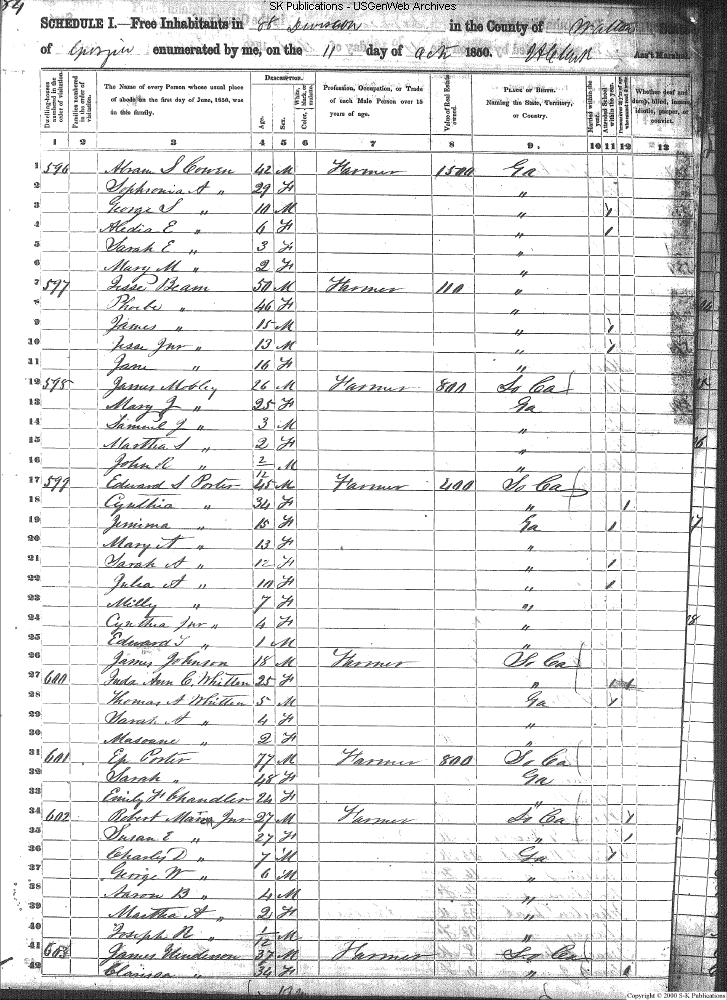 SK Publications - USGenWeb Archives
84
SCHEDULE I.—Free Inhabitants in 88 Division in the County of Walton State
of Georgia enumerated by me, on the 11 day of Oct 1850. Ass't Marshal.
Dwelling-houses numbered in the order of visitation.
Families numbered in the order of visitation.
The Name of every Person whose usual place of abode on the first day of June, 1850, was in this family.
DESCRIPTION.
Age.
Sex.
Color, White, black, or mulatto.
Profession, Occupation, or Trade of each Male Person over 15 years of age.
Value of Real Estate owned.
PLACE OF BIRTH. Naming the State, Territory, or Country.
Married within the year.
Attended School within the year.
Whether deaf and dumb, blind, insane, idiotic, pauper, or convict.
1 2 3 4 5 6 7 8 9. 10 11 12 13
1 596 Abram S Cowen 42 M Farmer 1500 Ga
2 Sophronia A " 29 F "
3 George S " 10 M " 1
4 " 6 F " 1
5 Sarah E " 3 F "
6 Mary M " 2 F "
7 597 Jesse Beam 50 M Farmer 110 "
8 Phoebe " 46 F "
9 James " 15 M " 1
10 Jesse Jur " 13 M " 1
11 Jane " 16 F "
12 598 James Mobley 26 M Farmer 800 So Ca
13 Mary J " 25 F Ga
14 Samuel J " 3 M "
15 Martha S " 2 F "
16 John R " 2/12 M "
17 599 Edward S Porter 45 M Farmer 400 So Ca
18 Cynthia " 34 F " 1
19 Jemima " 15 F Ga 1
20 Mary A " 13 F "
21 Sarah A " 12 F " 1
22 Julia A " 10 F " 1
23 Milly " 7 F "
24 Cynthia Jur " 4 F "
25 Edward T " 1 M "
26 James Johnson 18 M Farmer So Ca
27 600 Juda Ann C. Whitten 25 F " 1 1
28 Thomas A Whitten 5 M Ga 1
29 Sarah A " 4 F "
30 " 2 F "
31 601 Ep Porter 77 M Farmer 800 So Ca
32 Sarah " 48 F Ga
33 Emily F Chandler 24 F "
34 602 Robert Jur 27 M Farmer So Ca 1
35 Susan E " 27 F " 1
36 Charles D " 7 M Ga 1
37 George W " 6 M "
38 Aaron B " 4 M "
39 Martha A " 2 F "
40 Joseph R " 1/12 M "
41 603 James Hinderson 37 M Farmer So Ca
42 Clarissa " 34 F " 1
Copyright © 2000 S-K Publications